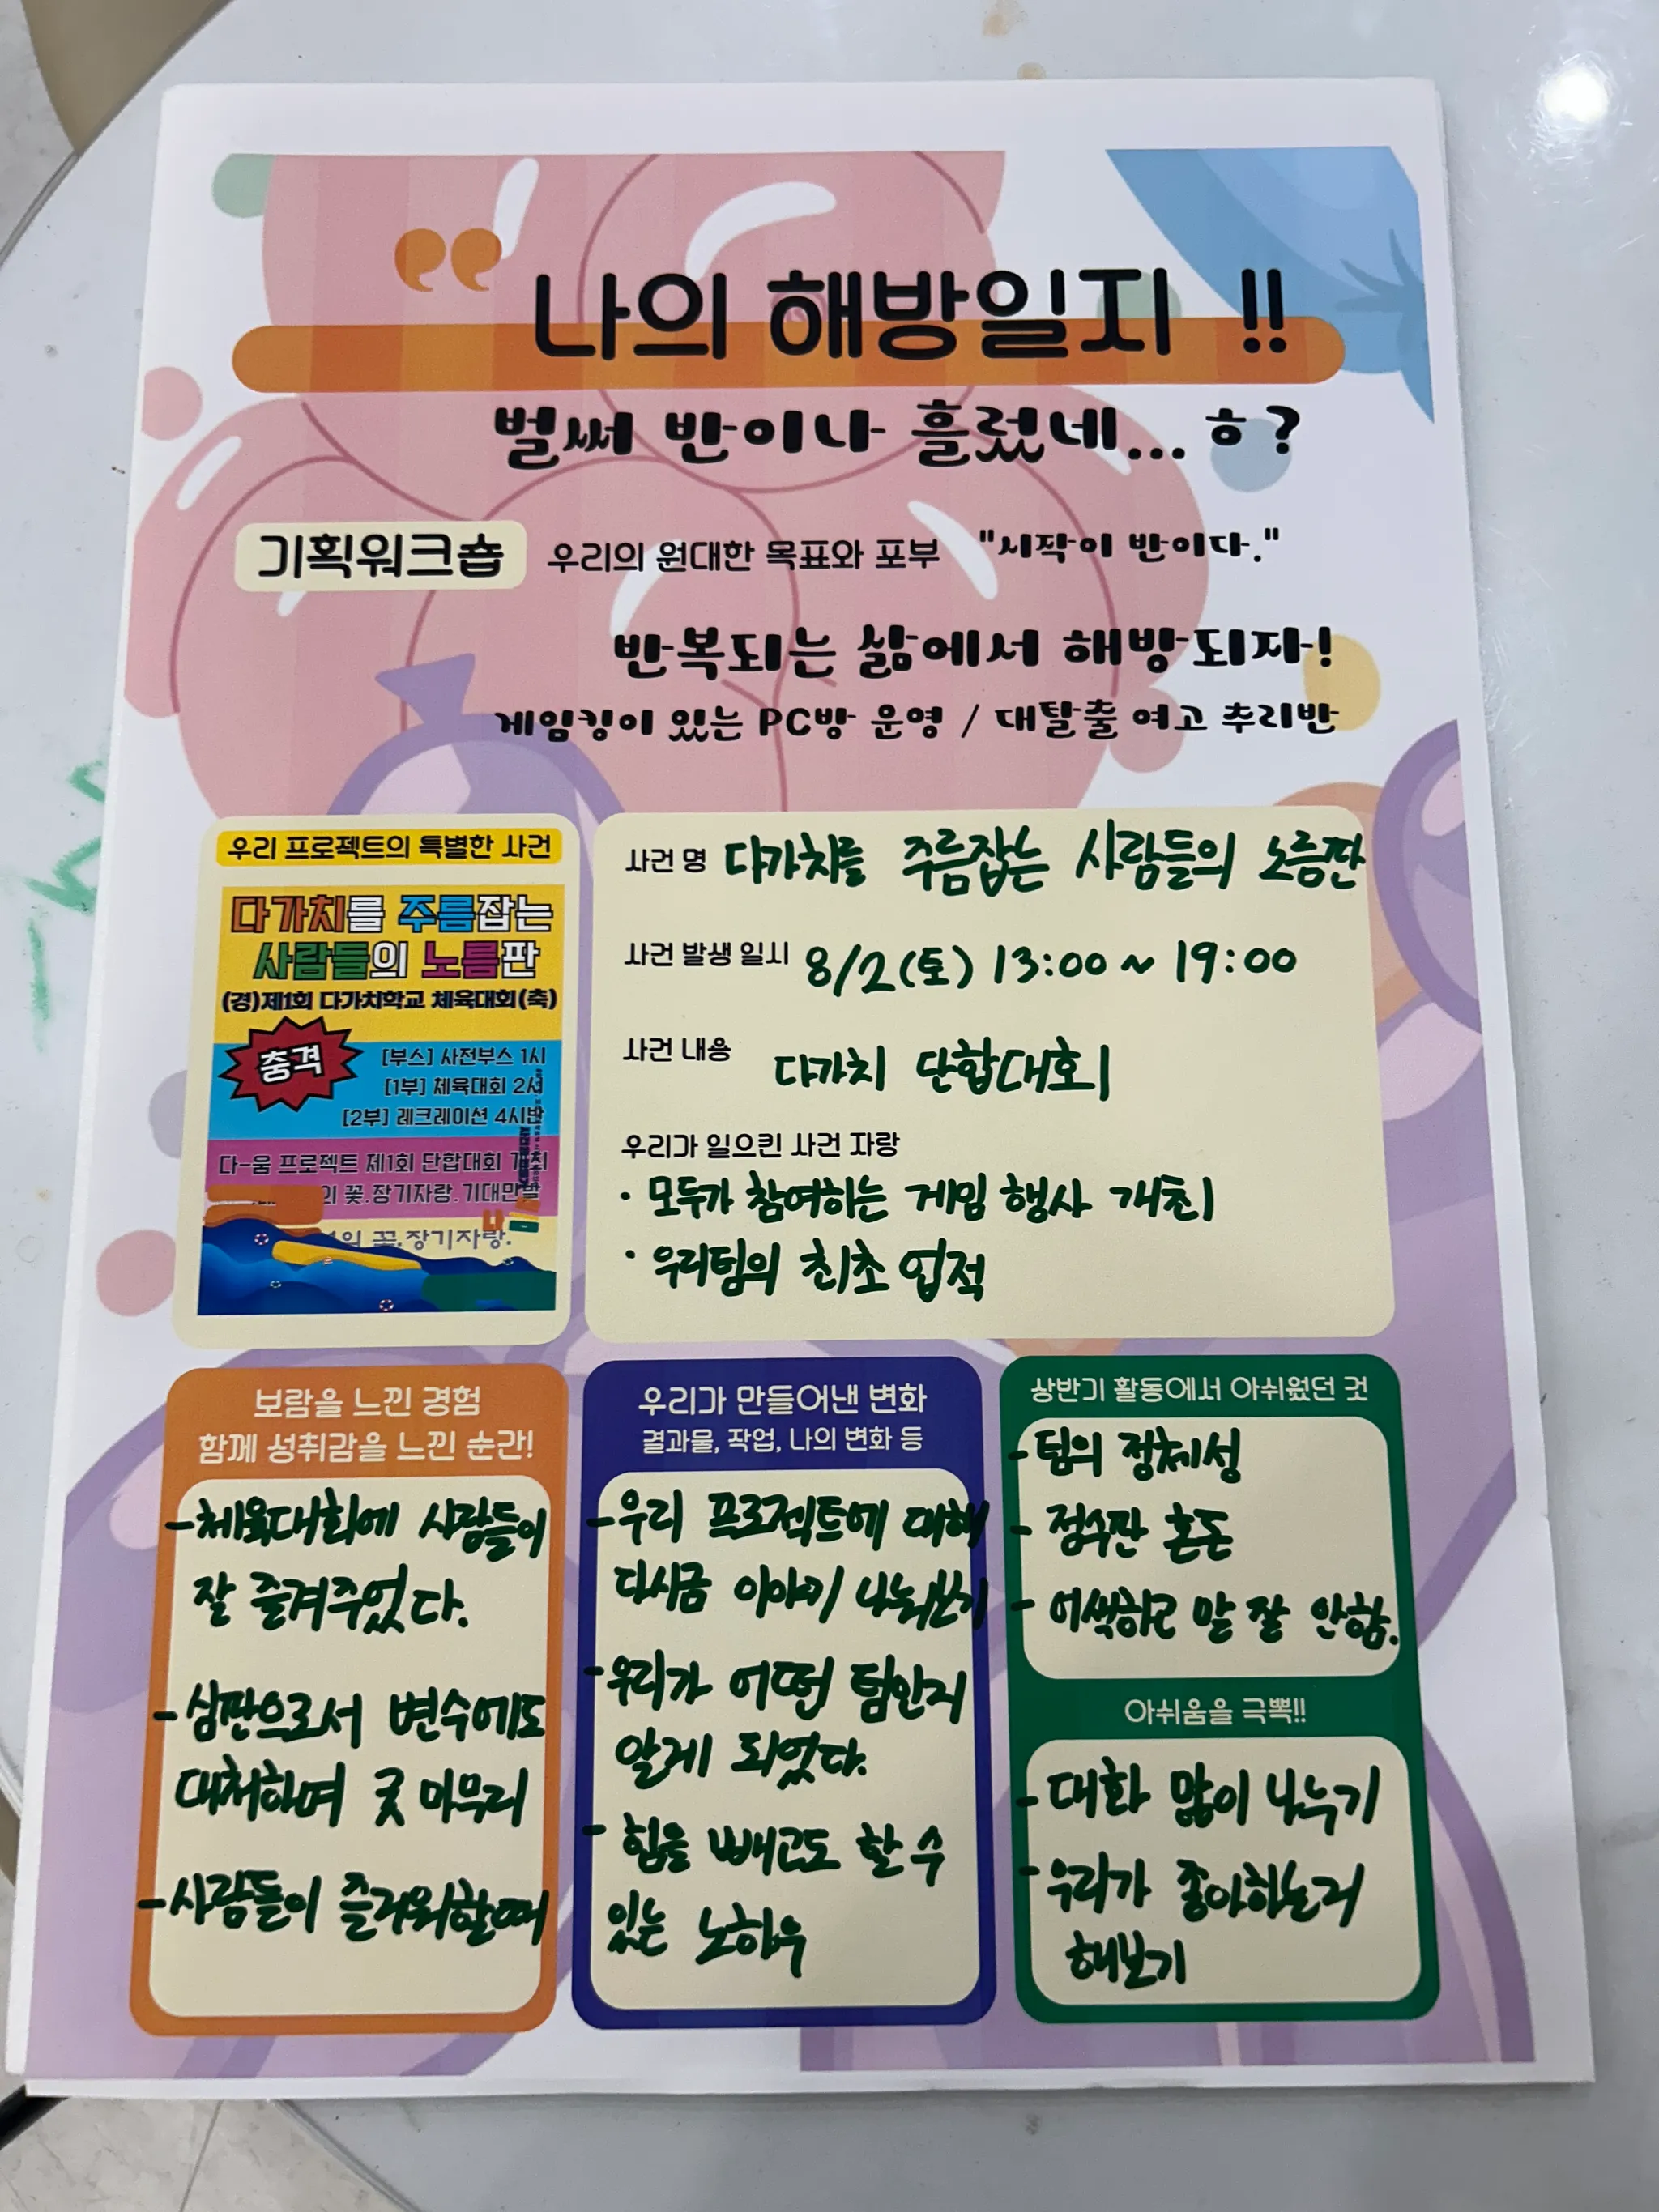 나의 해방일지 !!
벌써 반이나 흘렀네... ㅎ?
기획워크숍 우리의 원대한 목표와 포부 "시작이 반이다."
반복되는 삶에서 해방되자!
게임킹이 있는 PC방 운영 / 대탈출 여고 추리반
우리 프로젝트의 특별한 사건
다가치를 주름잡는
사람들의 노름판
(경)제1회 다가치학교 체육대회(축)
충격
[부스] 사전부스 1시
[1부] 체육대회 2시
[2부] 레크레이션 4시반
다-움 프로젝트 제1회 단합대회 개최
의 꽃.장기자랑.기대만발
의 꽃.장기자랑.
사건 명 다가치를 주름잡는 사람들의 노름판
사건 발생 일시 8/2(토) 13:00 ~ 19:00
사건 내용 다가치 단합대회
우리가 일으킨 사건 자랑
· 모두가 참여하는 게임 행사 개최
· 우리팀의 최초 업적
보람을 느낀 경험
함께 성취감을 느낀 순간!
-체육대회에 사람들이
잘 즐겨주었다.
-심판으로서 변수에도
대처하며 굿 마무리
-사람들이 즐거워할때
우리가 만들어낸 변화
결과물, 작업, 나의 변화 등
-우리 프로젝트에 대해
다시금 이야기 나눠보기
-우리가 어떤 팀인지
알게 되었다.
- 힘을 빼고도 할 수
있는 노하우
상반기 활동에서 아쉬웠던 것
-팀의 정체성
- 점수판 혼돈
- 어색하고 말 잘 안함.
아쉬움을 극뽁!!
- 대화 많이 나누기
-우리가 좋아하는거
해보기